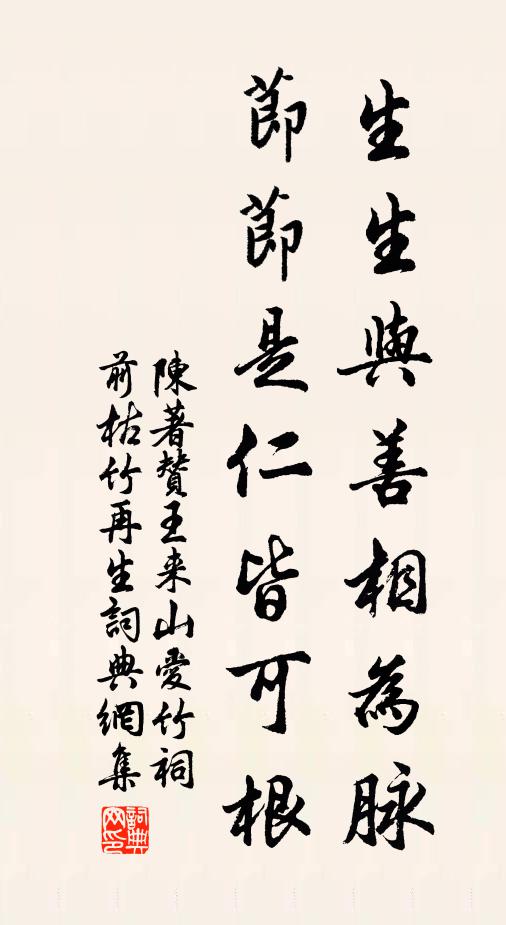 生生與善相為脉
節節是仁皆可根
陳著贊王来山愛竹祠
前枯竹再生詞典網集
詞典
网印